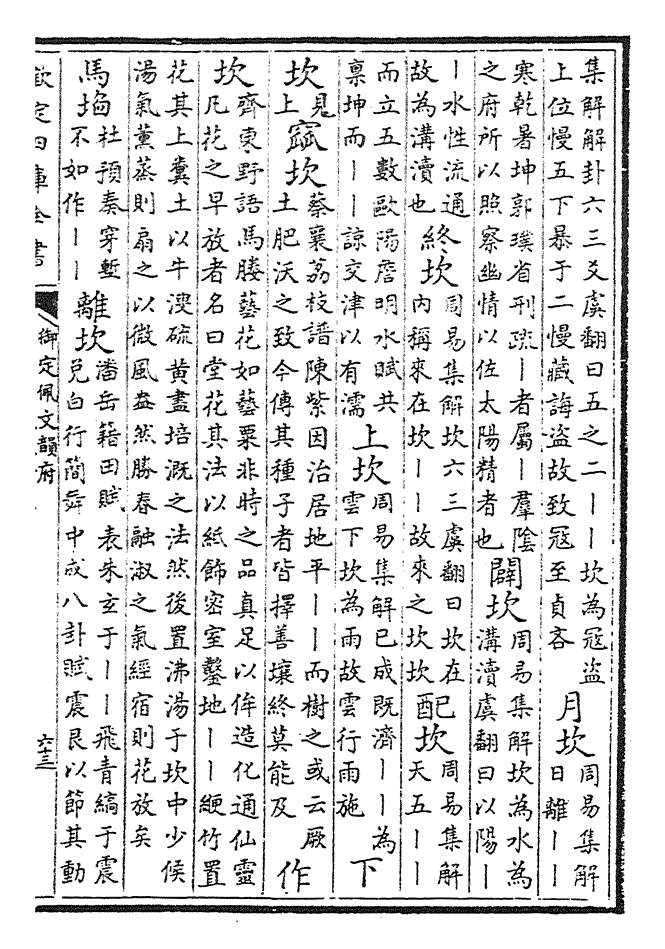 集解解卦六三爻虞翻曰五之二｜｜坎為冦盜
上位慢五下暴于二慢藏誨盜故致冦至貞吝
月坎
周易集解
日離｜｜
寒乾暑坤郭璞省刑疏｜者屬｜羣陰
之府所以照察幽情以佐太陽精者也
闢坎
周易集解坎為水為
溝瀆虞翻曰以陽｜
｜水性流通
故為溝瀆也
終坎
周易集解坎六三虞翻曰坎在
内稱來在坎｜｜故來之坎坎
配坎
周易集解
天五｜｜
而立五數歐陽詹明水賦共
禀坤而｜｜諒交津以有濡
上坎
周易集解已成既濟｜｜為
雲下坎為雨故雲行雨施
下
坎
見
上
窳坎
蔡襄荔枝譜陳紫因治居地平｜｜而樹之或云厥
土肥沃之致今傳其種子者皆擇善壤終莫能及
作
坎
齊東野語馬塍藝花如藝粟非時之品真足以侔造化通仙靈
凡花之早放者名曰堂花其法以紙飾密室鑿地｜｜緶竹置
花其上糞土以牛溲硫黃盡培溉之法然後置沸湯于坎中少候
湯氣薰蒸則扇之以微風盎然勝春融淑之氣經宿則花放矣
馬埳
杜預奏穿塹
不如作｜｜
離坎
潘岳籍田賦表朱玄于｜｜飛青縞于震
兌白行簡舞中成八卦賦震艮以節其動
欽定四庫全書
御定佩文韻府
六十三